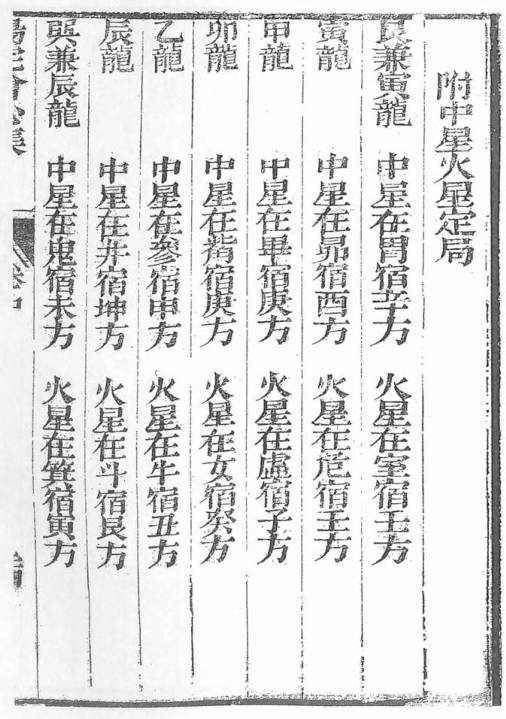 附中星火星定局
艮兼寅龍 中星在胃宿辛方 火星在室宿壬方
寅龍 中星在昴宿酉方 火星在危宿壬方
甲龍 中星在畢宿庚方 火星在虛宿子方
卯龍 中星在觜宿庚方 火星在女宿癸方
乙龍 中星在參宿申方 火星在牛宿丑方
辰龍 中星在井宿坤方 火星在斗宿艮方
巽兼辰龍 中星在鬼宿未方 火星在箕宿寅方